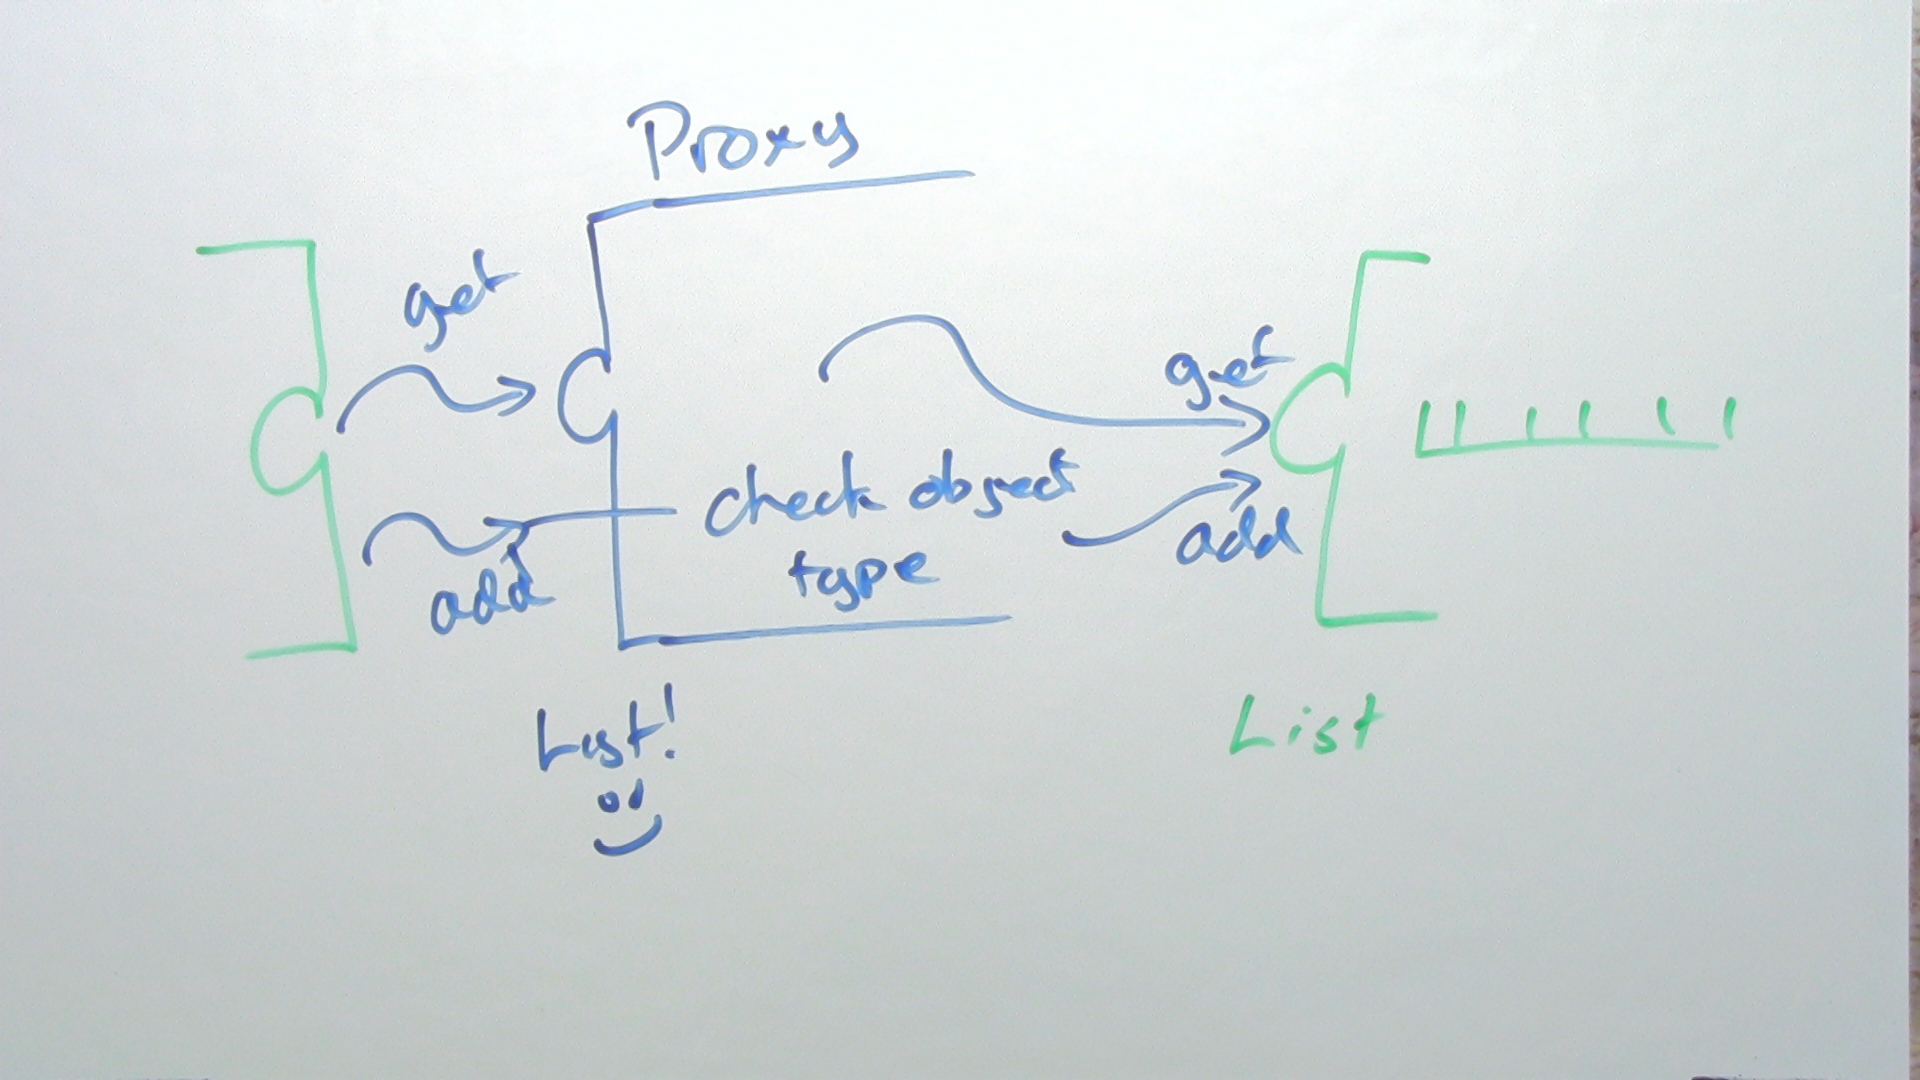 Proxy
get
get
check object
type
add
add
List!
List